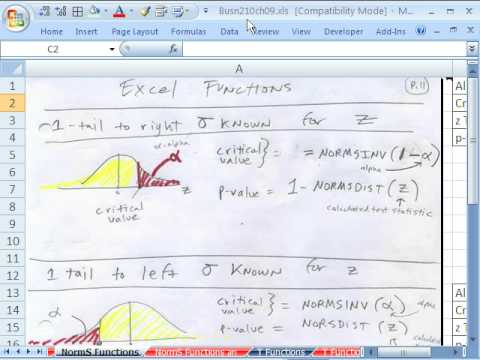 Busn210ch09.xls [Compatibility Mode] - M...
Home Insert Page Layout Formulas Data Review View Developer Add-Ins
C2 fx
A
1 2 3 4 5 6 7 8 9 10 11 12 13 14 15 16
Excel Functions P.11
1-tail to right σ known for z
α=alpha
α
critical value } = NORMSINV(1-α)
alpha
z
p-value = 1-NORMSDIST(z)
calculated test statistic
critical value
1 tail to left σ known for z
α
critical value } = NORMSINV(α) alpha
p-value = NORSDIST(z)
Al
Cr
z T
p-
Al
Cr
z T
NormS Functions NormS Functions an T Functions T Functions